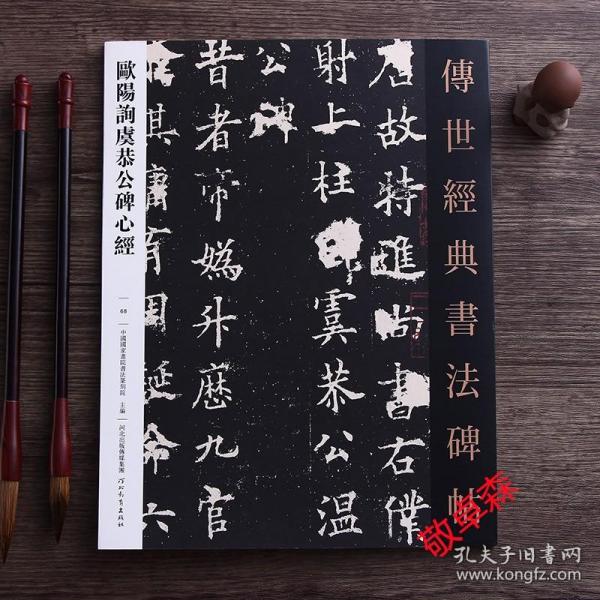 傳世經典書法碑帖
唐故特進尚書右僕
射上柱國虞恭公溫
公碑
昔者帝媯升歷九官
其庸有周誕命六
歐陽詢虞恭公碑心經
68
中國國家畫院書法篆刻院 主編
河北出版傳媒集團 河北教育出版社
孔夫子旧书网
www.kongfz.com